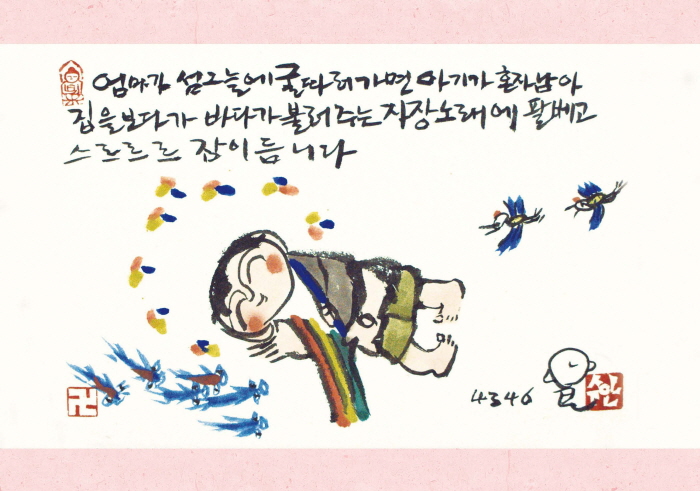 엄마가 섬그늘에 굴따러가면 아기가 혼자남아
집을보다가 바다가불러주는 자장노래에 팔베고
스르르르 잠이듭니다
卍
4346
수안